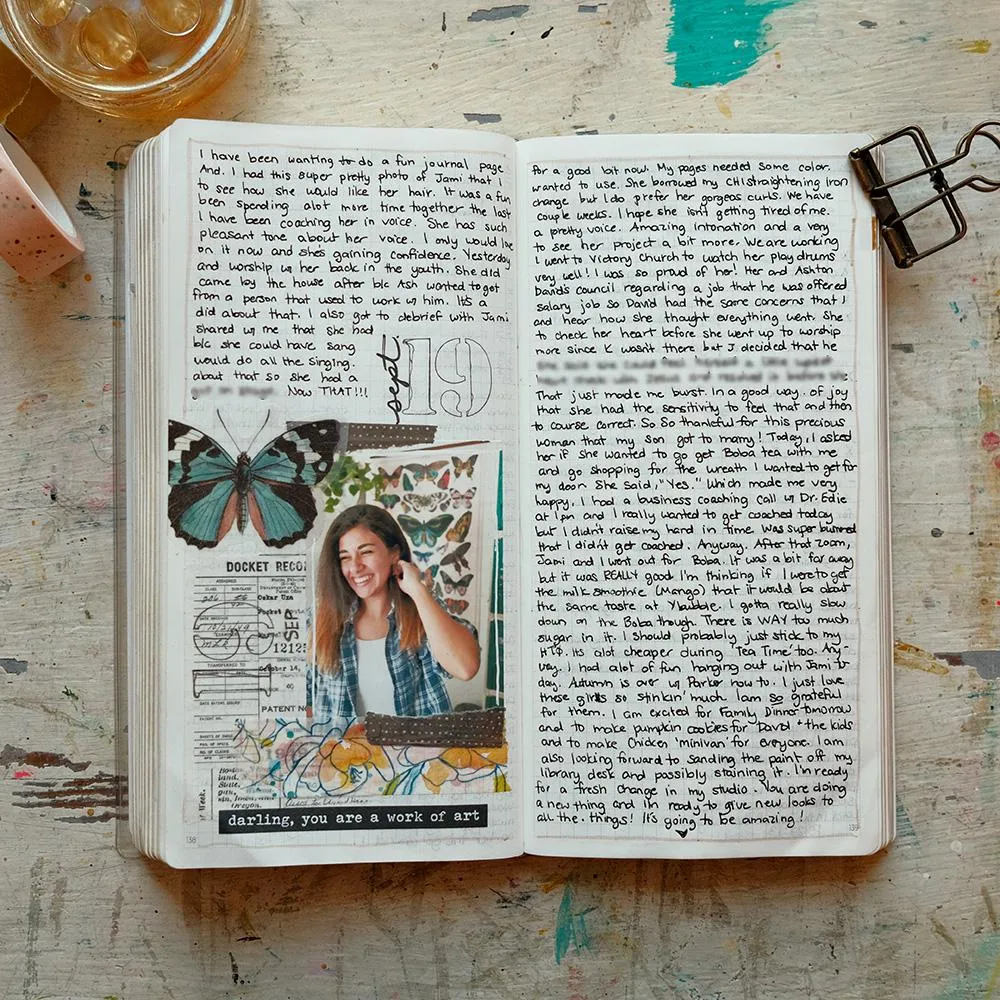 I have been wanting to do a fun journal page for a good bit now. My pages needed some color.
And. I had this super pretty photo of Jami that I wanted to use. She borrowed my CHI straightening iron
to see how she would like her hair. It was a fun change but I do prefer her gorgeos curls. We have
been spending alot more time together the last couple weeks. I hope she isn't getting tired of me.
I have been coaching her in voice. She has such a pretty voice. Amazing intonation and a very
pleasant tone about her voice. I only would love to see her project a bit more. We are working
on it now and she's gaining confidence. Yesterday I went to Victory Church to watch her play drums
and worship w her back in the youth. She did very well! I was so proud of her! Her and Ashton
came by the house after b/c Ash wanted to get David's council regarding a job that he was offered
from a person that used to work w him. It's a salary job so David had the same concerns that I
did about that. I also got to debrief with Jami and hear how she thought everything went. She
shared w me that she had to check her heart before she went up to worship
b/c she could have sang more since K wasn't there but J decided that he
would do all the singing.
about that so she had a
Now THAT!!! That just made me burst. In a good way. of joy
sept. 19
that she had the sensitivity to feel that and then
to course correct. So So thankful for this precious
woman that my son got to marry! Today, I asked
her if she wanted to go get Boba tea with me
and go shopping for the wreath I wanted to get for
my door. She said, "Yes." Which made me very
happy. I had a business coaching call w Dr. Edie
at 1pm and I really wanted to get coached today
but I didn't raise my hand in time. Was super bummed
that I didn't get coached. Anyway. After that zoom,
Jami and I went out for Boba. It was a bit far away
but it was REALLY good. I'm thinking if I were to get
the milk smoothie (Mango) that it would be about
the same taste at
I gotta really slow
down on the Boba though. There is WAY too much
sugar in it. I should probably just stick to my
HTG. Its alot cheaper during 'Tea Time' too. Any-
way. I had alot of fun hanging out with Jami to-
day. Autumn is over in Parker now to. I just love
these girls so stinkin' much. I am so grateful
for them. I am excited for Family Dinner tomorrow
and to make pumpkin cookies for David + the kids
and to make Chicken 'minivan' for everyone. I am
also looking forward to sanding the paint off my
library desk and possibly staining it. I'm ready
for a fresh change in my studio. You are doing
a new thing and I'm ready to give new looks to
all the. things! It's going to be amazing!
DOCKET RECO
ASSIGNED
CLASS
Oskar Uza
SEP
12125
TRANSFERRED TO
October 14,
PATENT NO
Oregon.
Week.
darling, you are a work of art
138
139